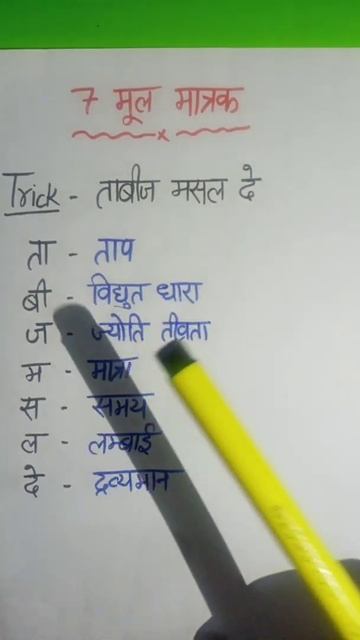 7 मूल मात्रक
Trick - ताबीज मसल दे
ता - ताप
बी - विद्युत धारा
ज - ज्योति तीव्रता
म - मात्रा
स - समय
ल - लम्बाई
दे - द्रव्यमान